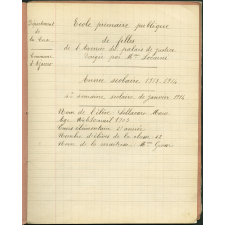 Département
de
la Corse
Commune
d'Ajaccio
École primaire publique
de filles
de l'Avenue du palais de justice
Dirigée par Mme
Année scolaire 1913-1914
semaine scolaire de janvier 1914
Nom de l'élève: Marie
Age
Cours élémentaire 2e année
Nombre d'élèves de la classe
Nom de la maîtresse Mme